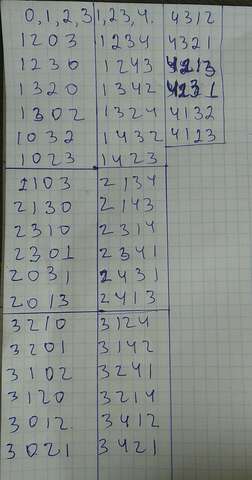 0,1,2,3 1,23,4. 4312
1203 1234 4321
1230 1243 4213
1320 1342 4231
1302 1324 4132
1032 1432 4123
1023 1423
2103 2134
2130 2143
2310 2314
2301 2341
2031 2431
2013 2413
3210 3124
3201 3142
3102 3241
3120 3214
3012. 3412
3021 3421